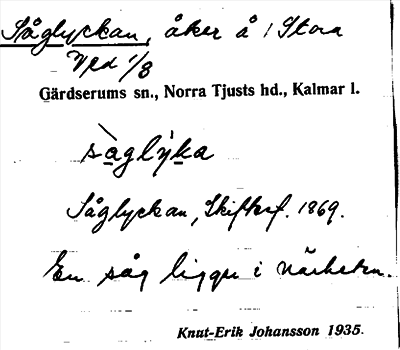 Såglyckan, åker å 1 Stora
Ved 1/8
Gärdserums sn., Norra Tjusts hd., Kalmar l.
såglỳka
Såglyckan, Skifteskf. 1869.
En såg ligger i närheten.
Knut-Erik Johansson 1935.